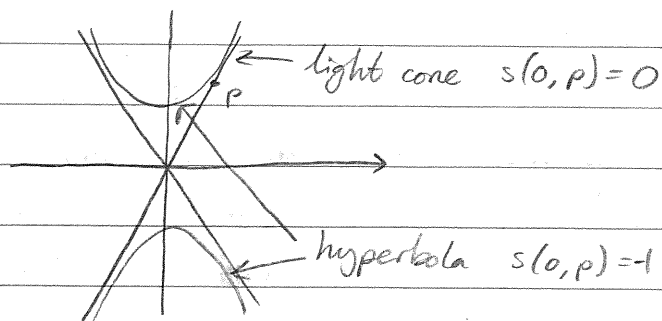 light cone s(0,p)=0
p
hyperbola s(0,p)=-1